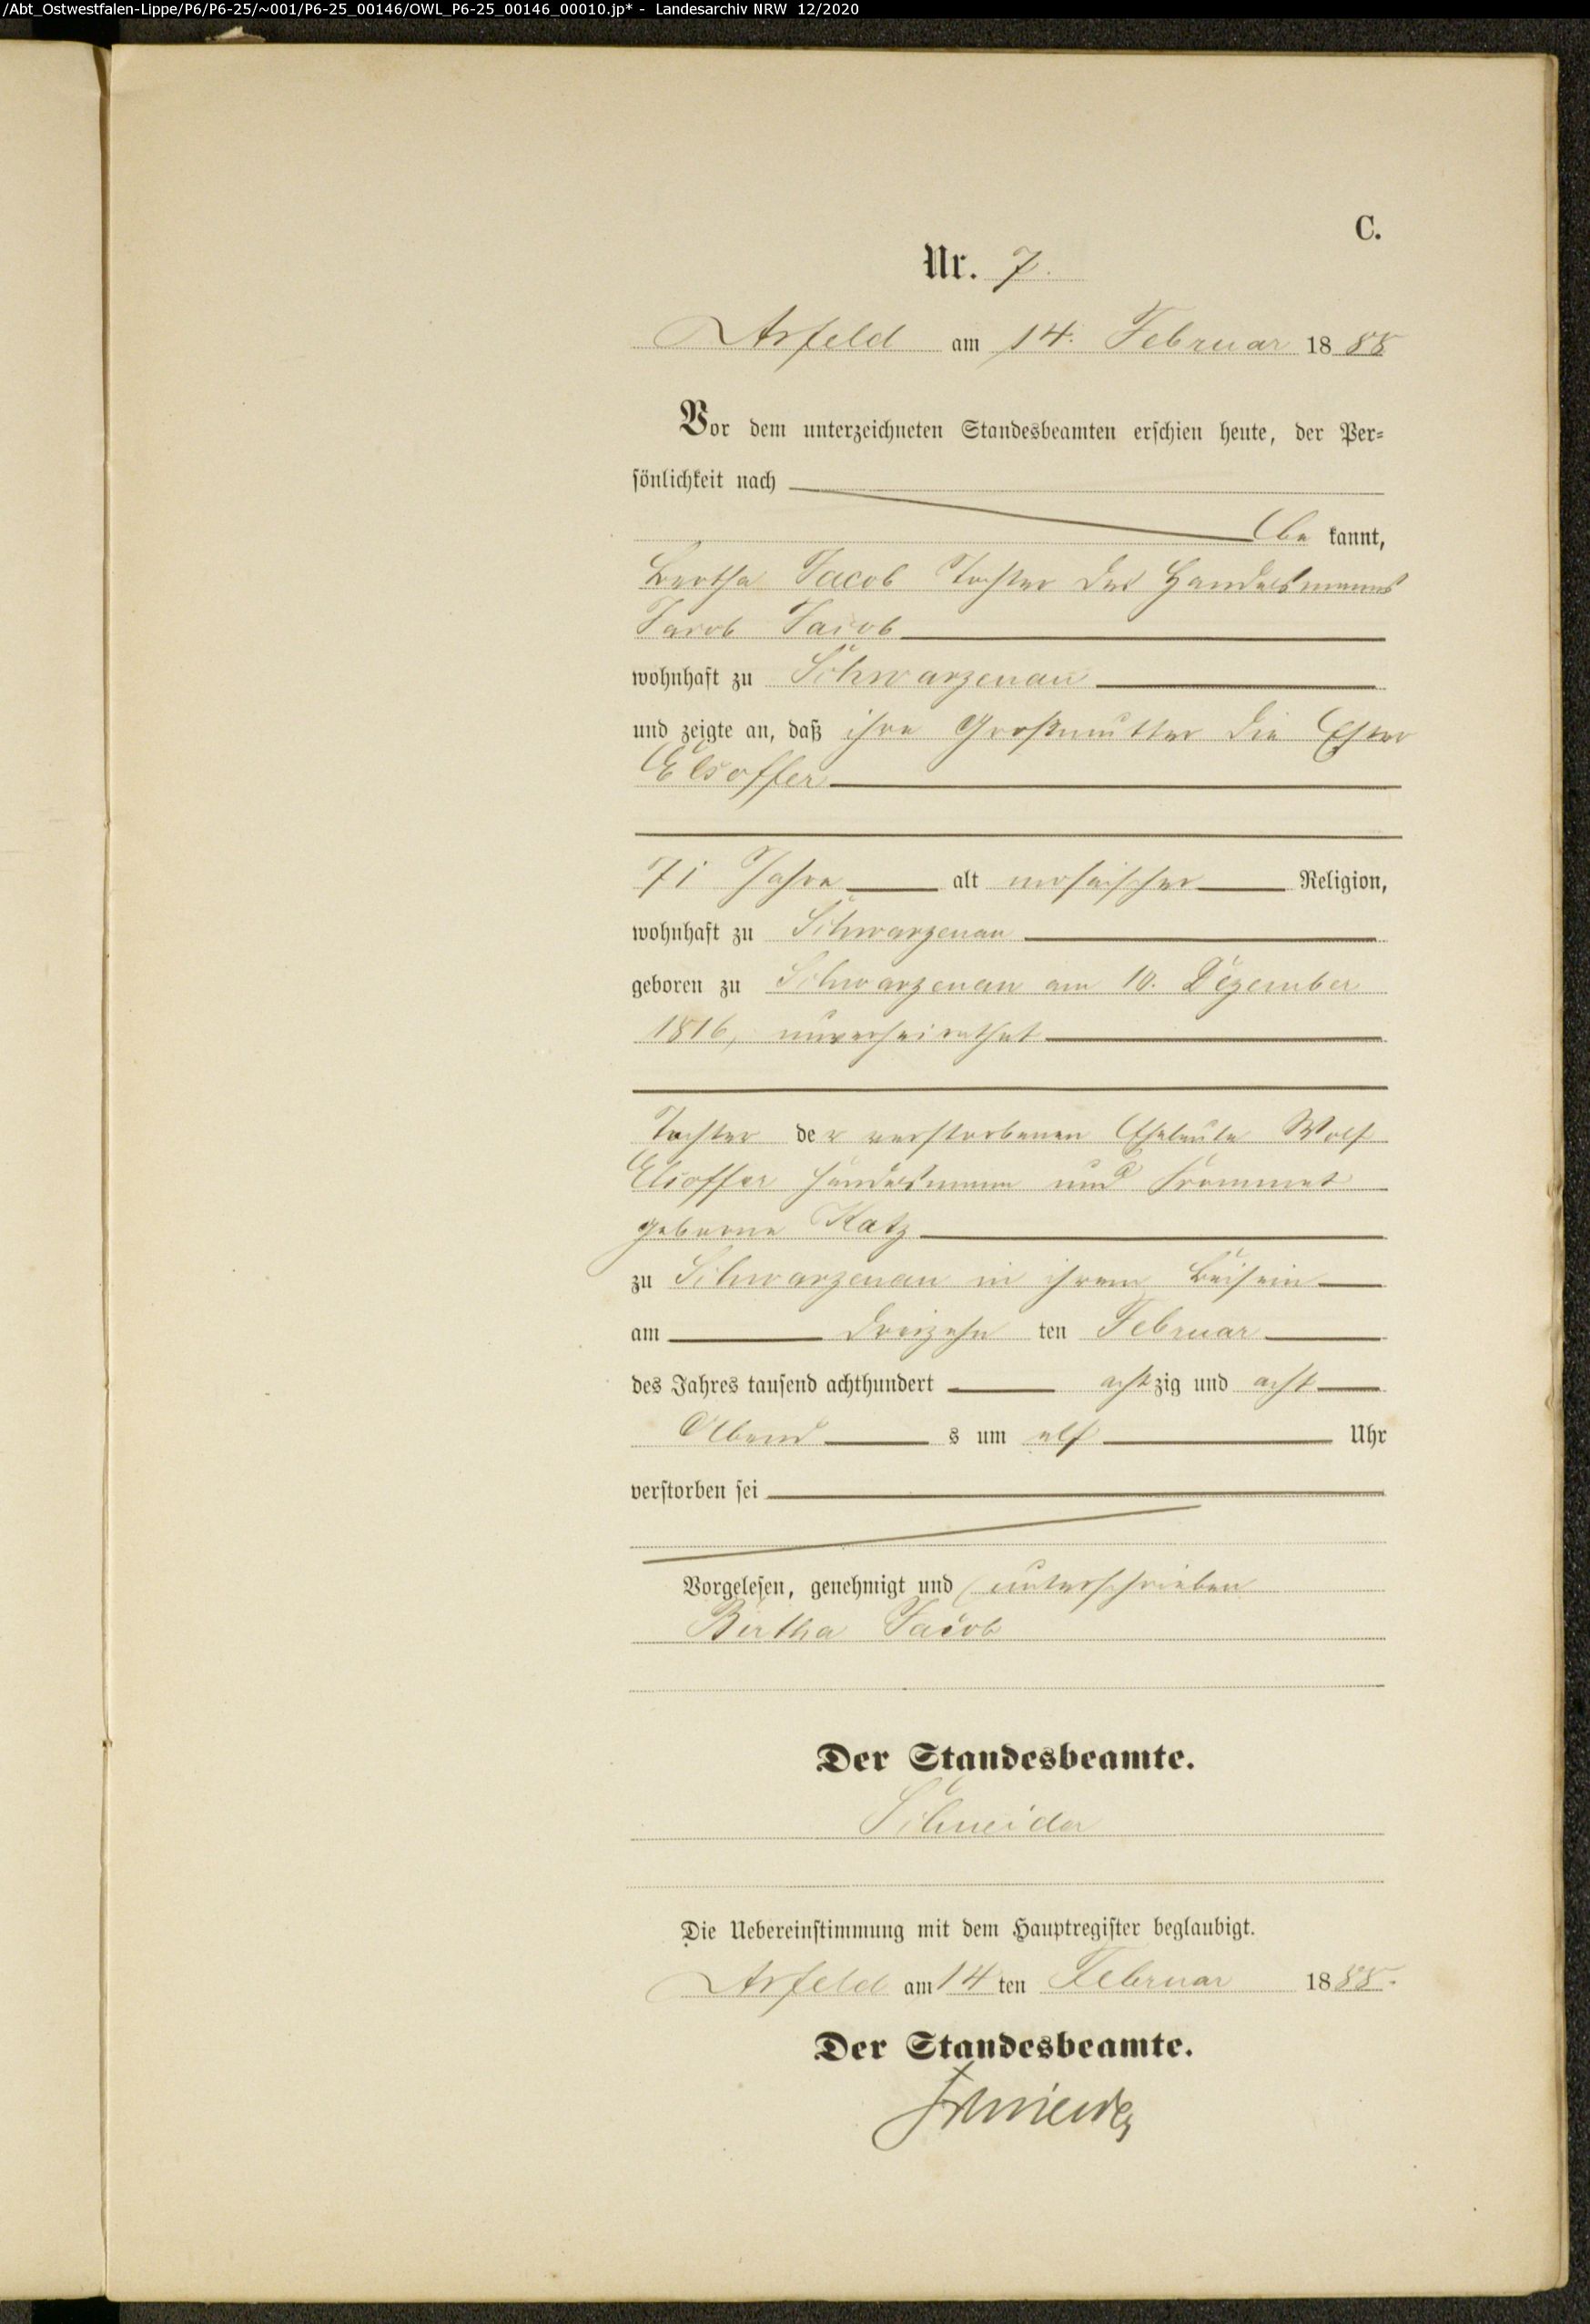 /Abt_Ostwestfalen-Lippe/P6/P6-25/~001/P6-25_00146/OWL_P6-25_00146_00010.jp* - Landesarchiv NRW 12/2020
C.
Nr. 7.
Arfeld am 14. Februar 1888
Vor dem unterzeichneten Standesbeamten erschien heute, der Per-
sönlichkeit nach
be kannt,
Bertha Jacob Tochter des Handelsmanns
Jacob Jacob
wohnhaft zu Schwarzenau
und zeigte an, daß ihre Großmutter die Ester
Elsoffer
71 Jahre alt mosaischer Religion,
wohnhaft zu Schwarzenau
geboren zu Schwarzenau am 10. Dezember
1816, unverheirathet
Tochter der verstorbenen Eheleute Wolf
Elsoffer Handelsmann und Frommet
geborne Katz
zu Schwarzenau in ihrem Beisein
am dreizehn ten Februar
des Jahres tausend achthundert achtzig und acht
Abend s um elf Uhr
verstorben sei
Vorgelesen, genehmigt und unterschrieben
Bertha Jacob
Der Standesbeamte.
Schneider
Die Uebereinstimmung mit dem Hauptregister beglaubigt.
Arfeld am 14 ten Februar 1888.
Der Standesbeamte.
Schneider